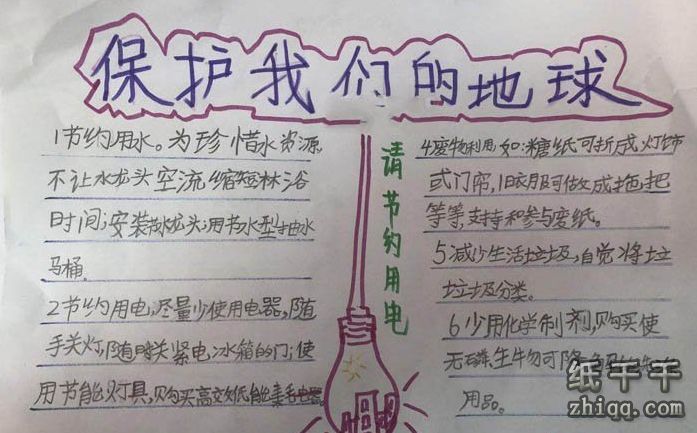 保护我们的地球
1节约用水。为珍惜水资源
不让水龙头空流缩短淋浴
时间;安装水龙头;用节水型抽水
马桶。
2节约用电,尽量少使用电器,随
手关灯,随时关紧电冰箱的门;使
用节能灯具,购买高交低能毒毛电器
请节约用电
4废物利用如:糖纸可折成灯饰
或门帘,旧衣服及可做成拖把
等等,支持和参与废纸。
5减少生活垃圾,自觉将垃
垃圾分类。
6少用化学制剂,购买使
无磷生物可降
用品。
纸千千
zhiqq.com